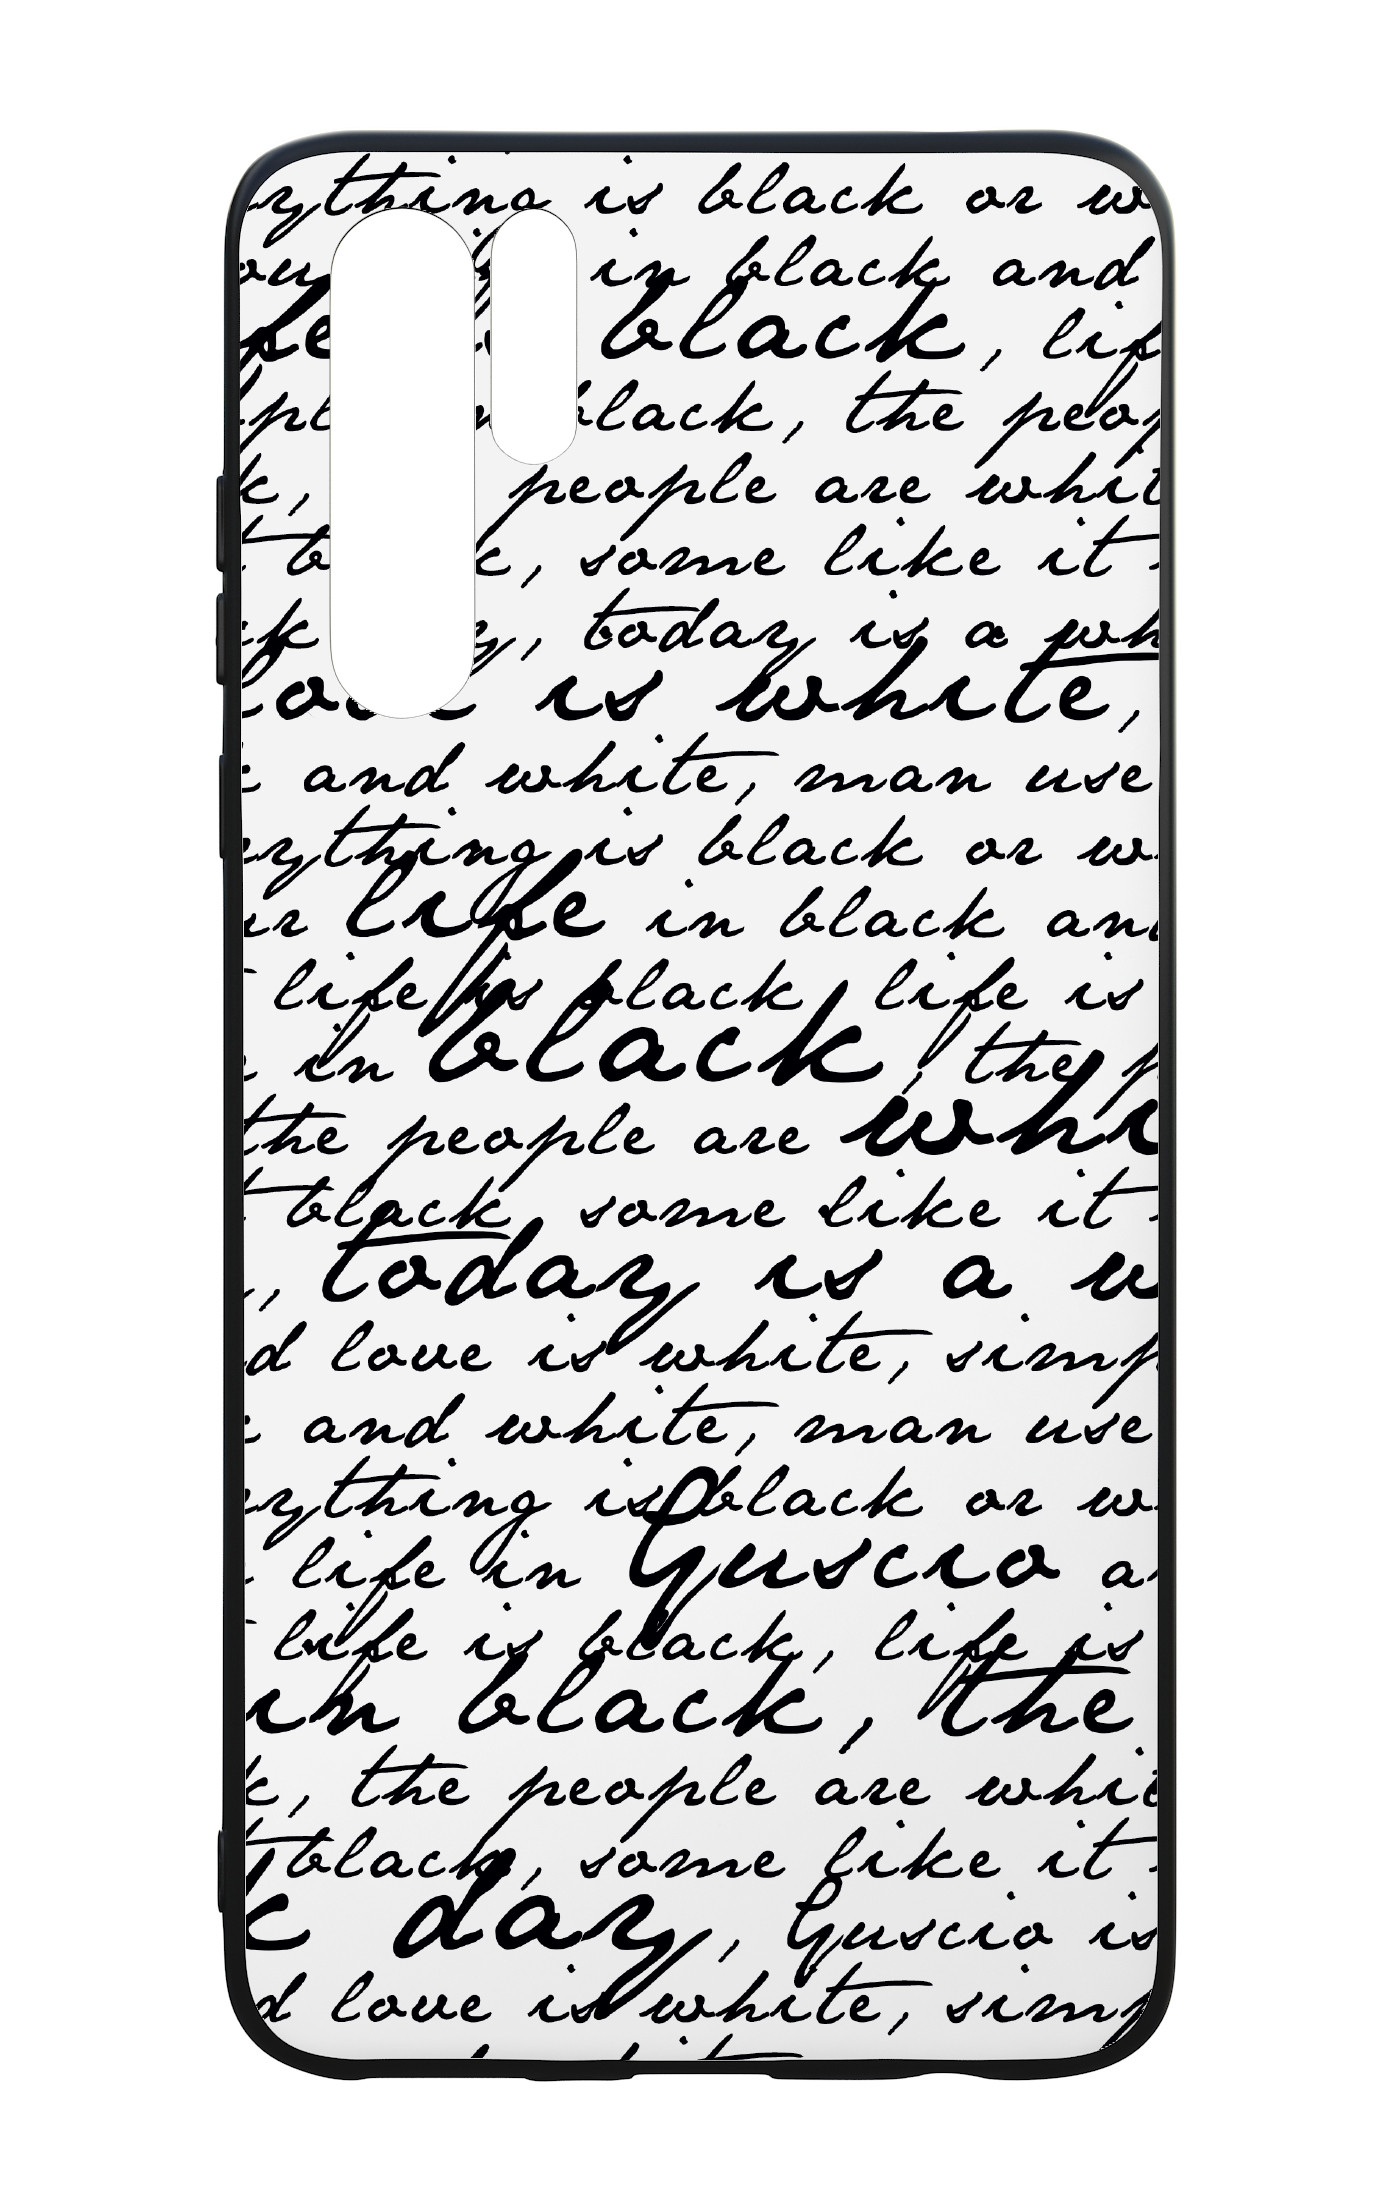 is black or
in black and
black,
black, the
people are
some like it
today is a
is white,
and white, man use
is black or
life in black
life is black, life is
in black, the
the people are
black, some like it
, today is a
love is white,
and white, man use
is black or
life in Guscio
life is black, life is
in black, the
, the people are
black, some like it
day, Guscio is
love is white,